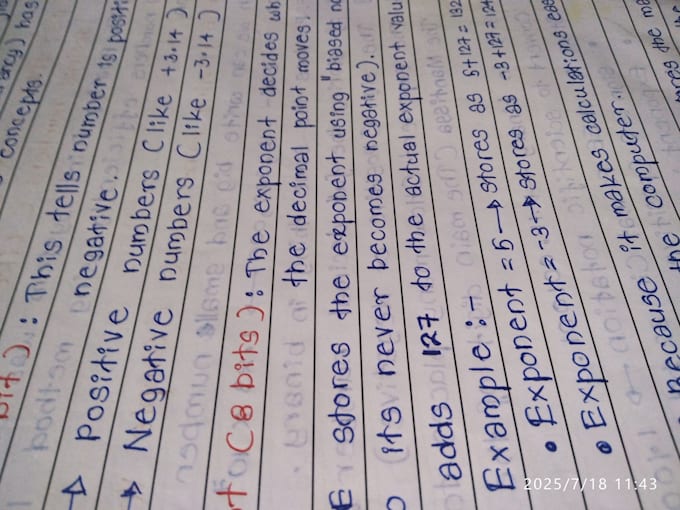 concepts.
bit) : This tells number is
negative.
→ Positive numbers (like +3.14)
→ Negative numbers (like -3.14)
(8 bits) : The exponent decides
the decimal point moves.
stores the exponent using "biased
(its never becomes negative).
adds 127 to the actual exponent
Example :-
• Exponent = 5 → stores as 5+127 = 132
• Exponent = -3 → stores as -3+127 = 124
it makes calculations
Because the computer.
2025/7/18 11:43